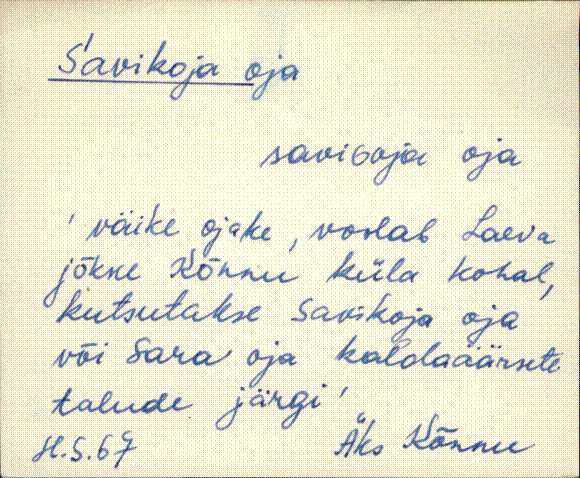 Savikoja oja
savicoja oja
' väike ojake, voolab Laeva
jõkke Kõnnu küla kohal,
kutsutakse Savikoja oja
või Sara oja kaldaäärsete
talude järgi '
H.S.67 Äks Kõnnu